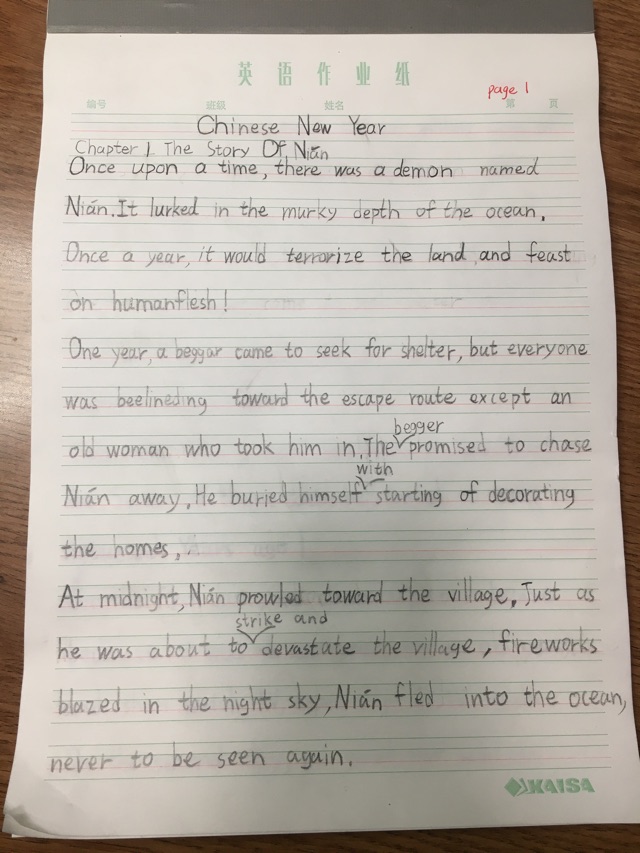 英语作业纸
page 1
编号 班级 姓名 第 页
Chinese New Year
Chapter 1. The Story Of Nián
Once upon a time, there was a demon named
Nián. It lurked in the murky depth of the ocean.
Once a year, it would terrorize the land and feast
on humanflesh!
One year, a beggar came to seek for shelter, but everyone
was beelineding toward the escape route except an
begger
old woman who took him in. The promised to chase
with
Nián away. He buried himself starting of decorating
the homes.
At midnight, Nián prowled toward the village. Just as
strike and
he was about to devastate the village, fireworks
blazed in the night sky, Nián fled into the ocean,
never to be seen again.
KAISA